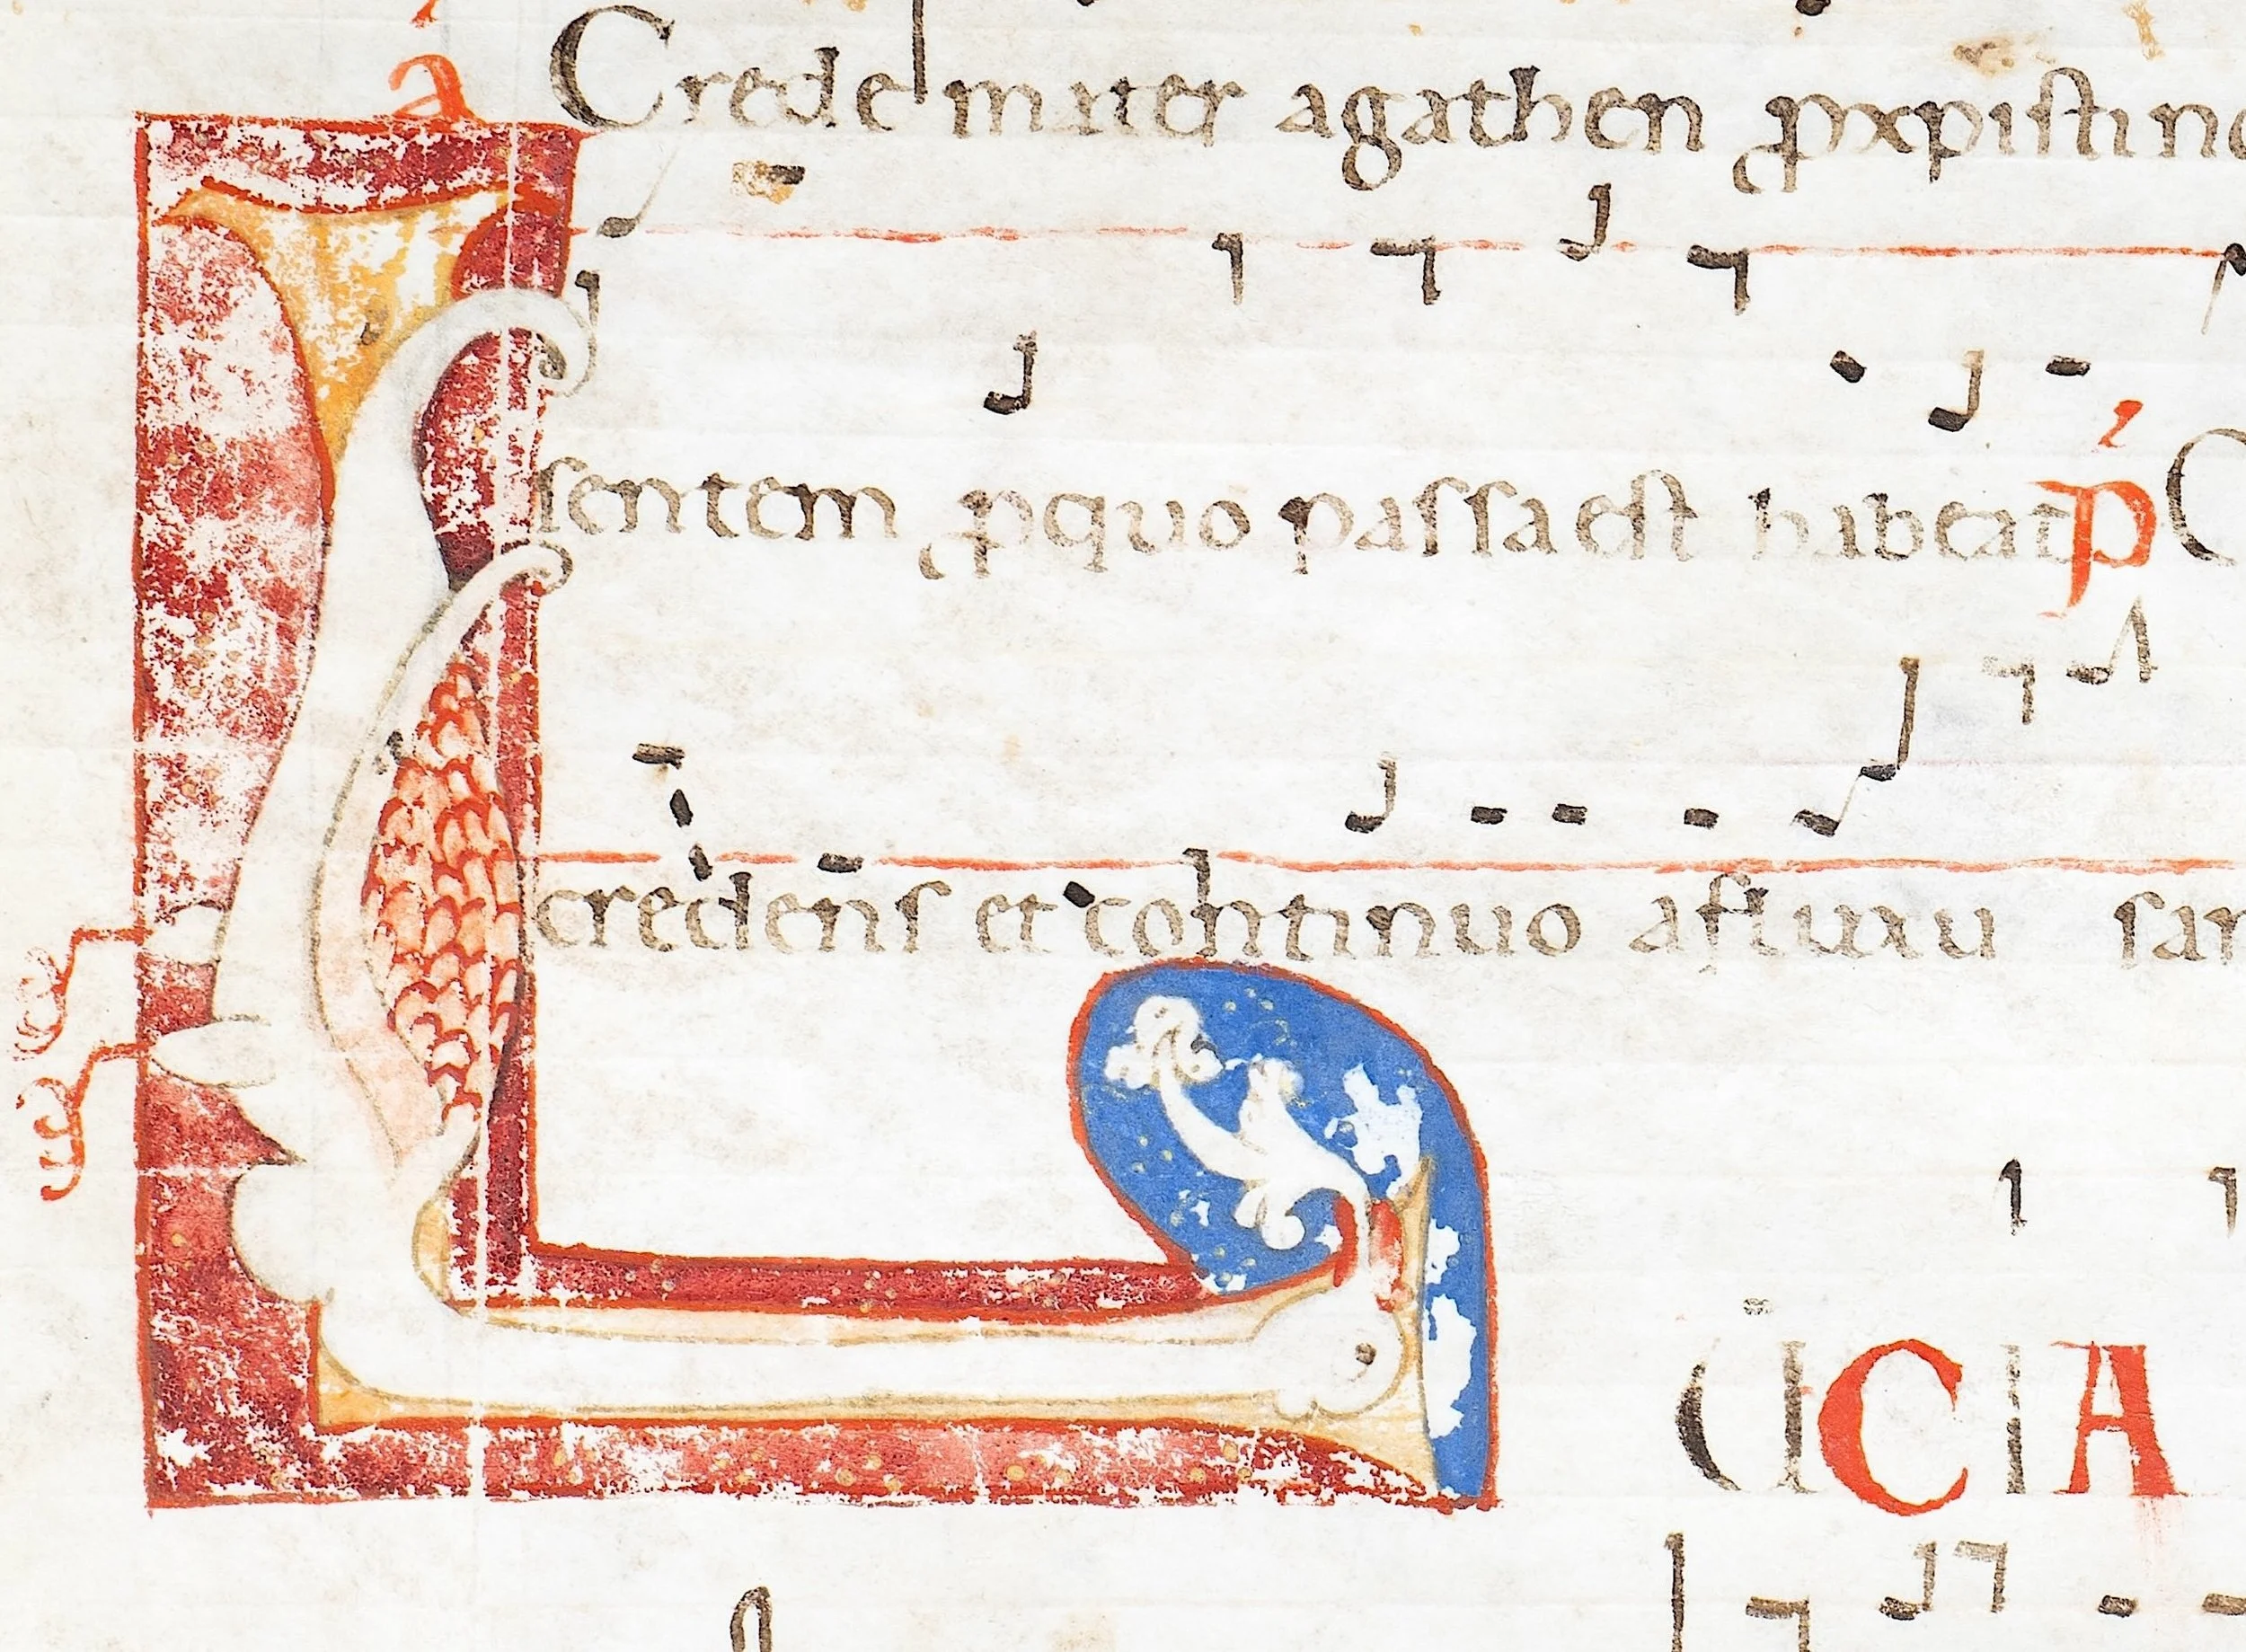 a Crede mater agathen ꝓ xpisti no
sentem ꝓ quo passa est habeat p C
credens et continuo afluxu san
LUCIA